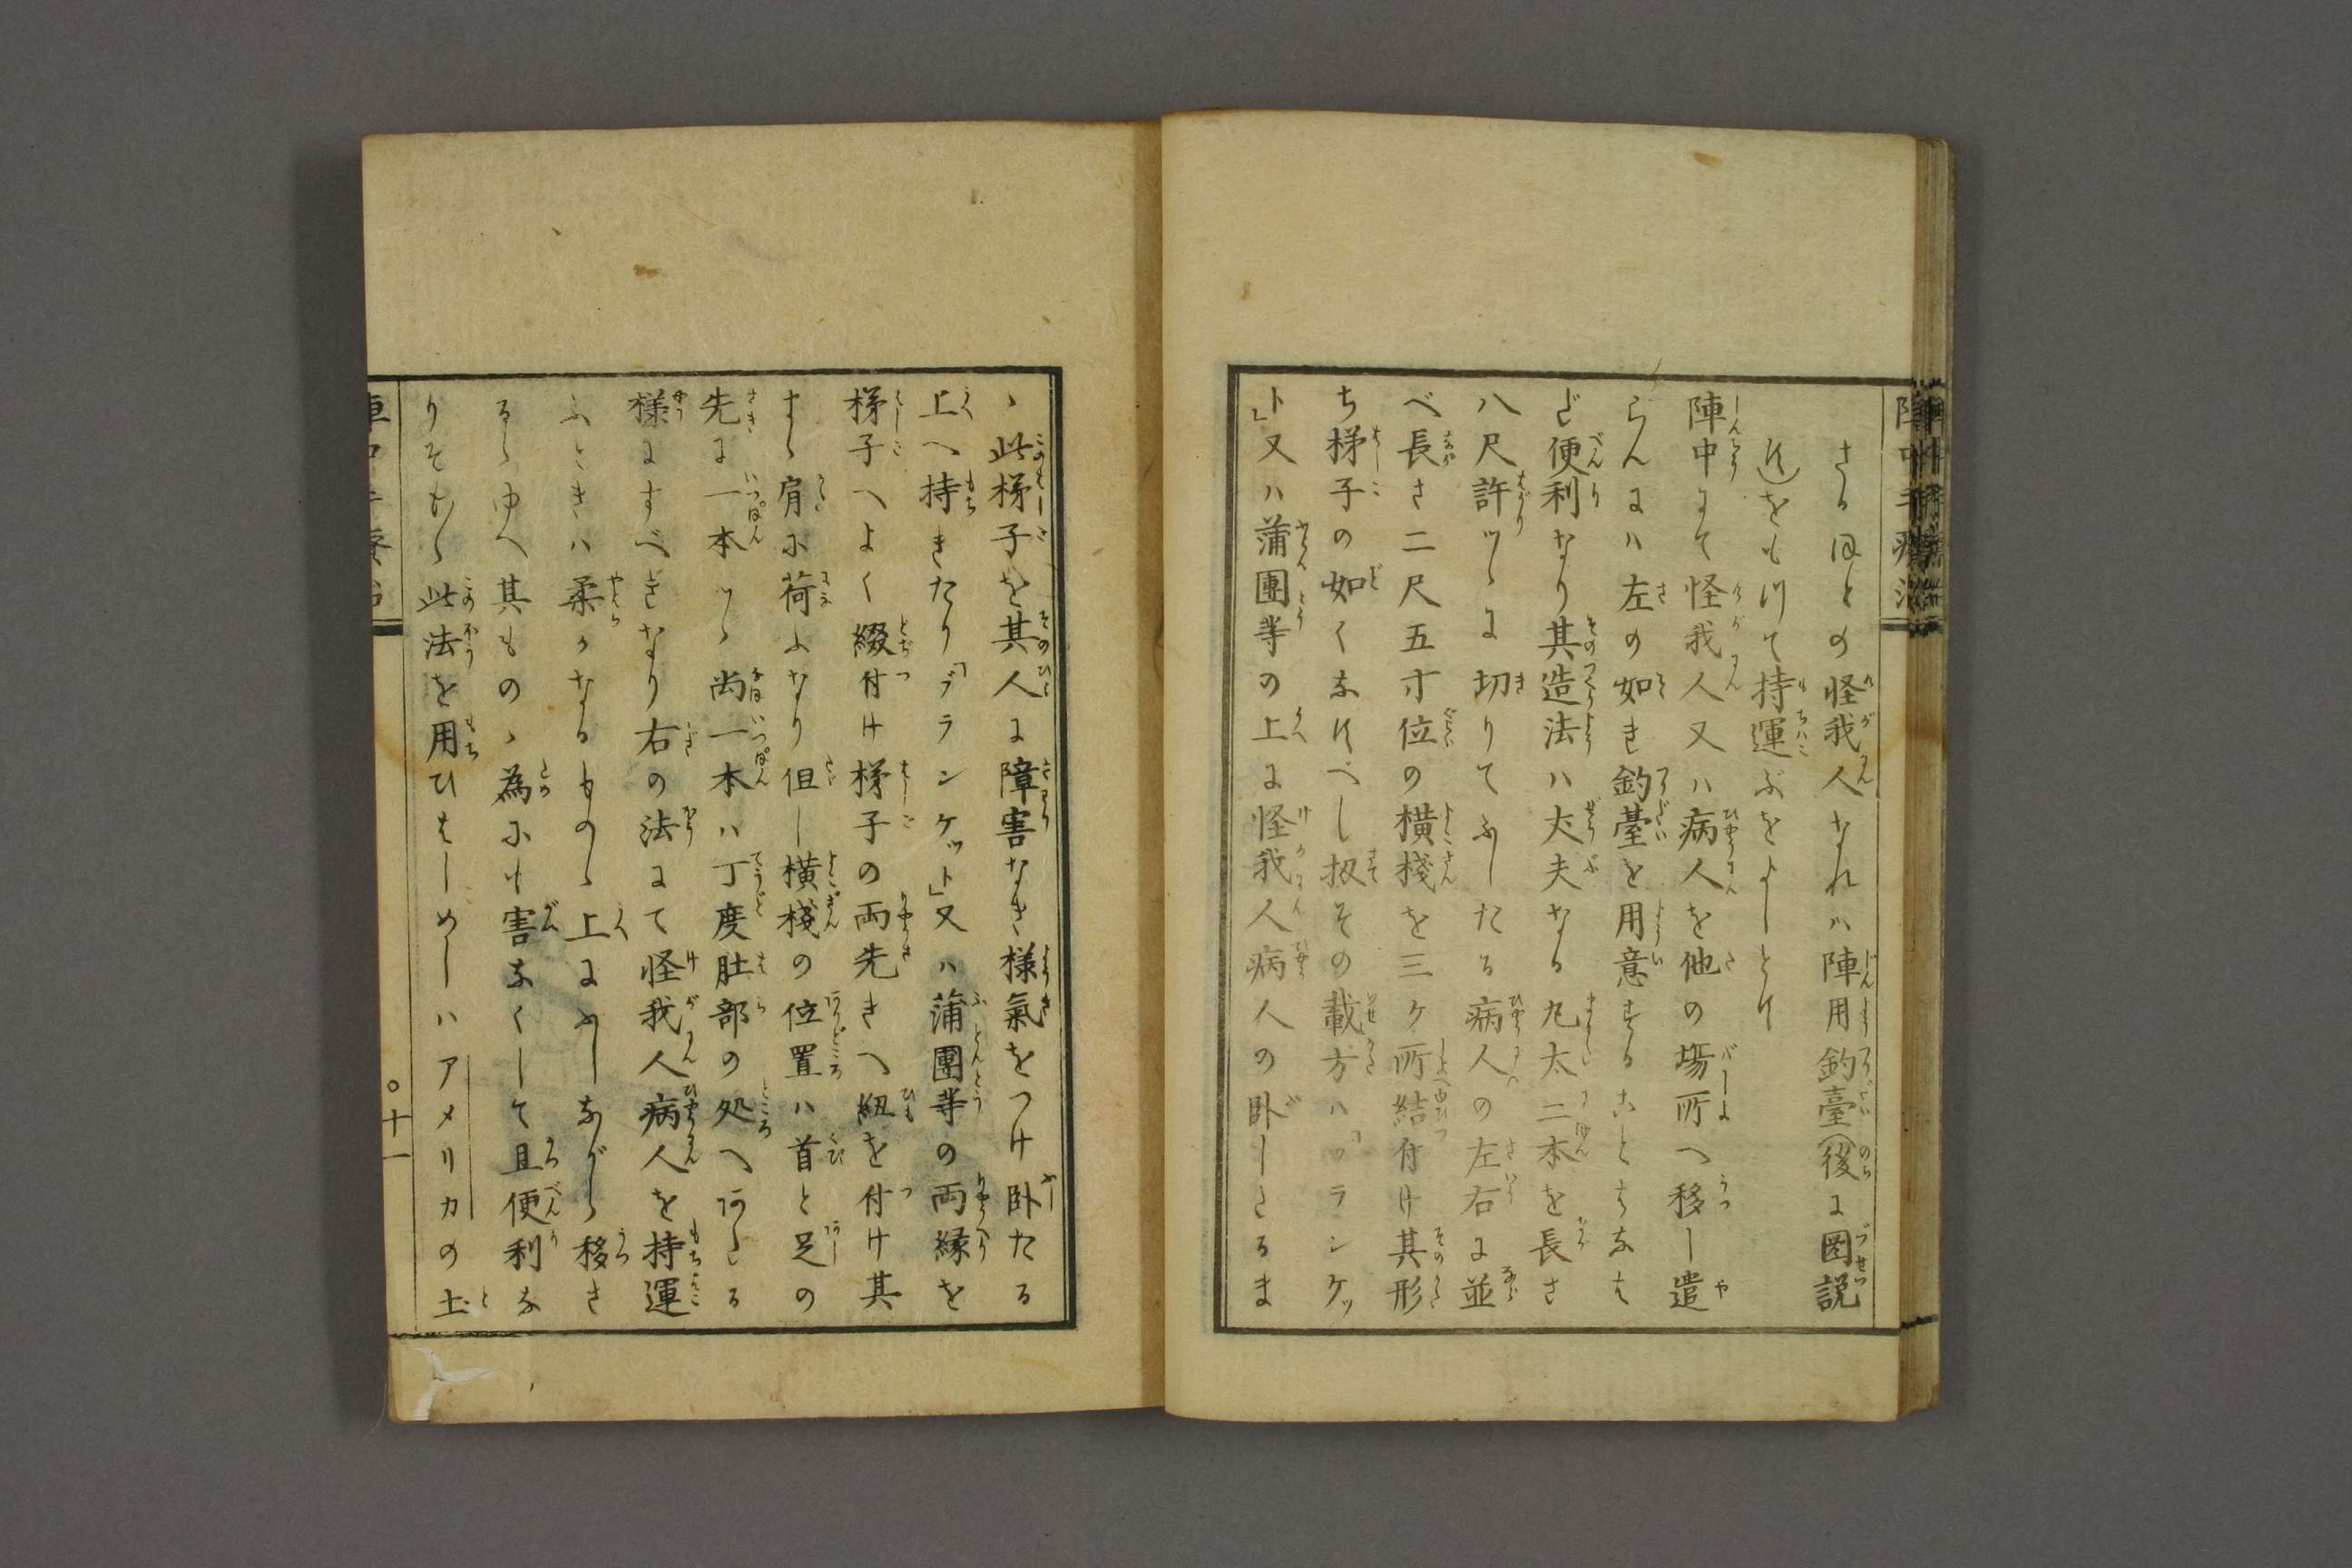 さるほどの怪我人なれバ陣用釣臺（後に圖説
す）をもつて持運ぶをよしとす
陣中にて怪我人又ハ病人を他の塲所へ移し遣
らんにハ左の如き釣臺を用意することをなは
ど便利なり其造法ハ丈夫なる丸太二本を長さ
八尺許ツヽに切りてふしたる病人の左右に並
べ長さ二尺五寸位の横棧を三ケ所結付け其形
ち梯子の如くなすべし扨その載方ハ「ブランケッ
ト」又ハ蒲團等の上に怪我人病人の卧したるま
ヽ此梯子を其人に障害なき様氣をつけ卧たる
上へ持きたり「ブランケット」又ハ蒲團等の両縁を
梯子へよく綴付け梯子の両先きへ紐を付け其
まヽ肩に荷ふなり但し横棧の位置ハ首と足の
先に一本ツヽ尚一本ハ丁度肚部の処へあたる
様にすべきなり右の法にて怪我人病人を持運
ふときハ柔かなるものヽ上にふしながら移さ
るヽゆへ其ものヽ為にも害なくして且便利な
りそもヽ此法を用ひはじめしハアメリカの土
十一